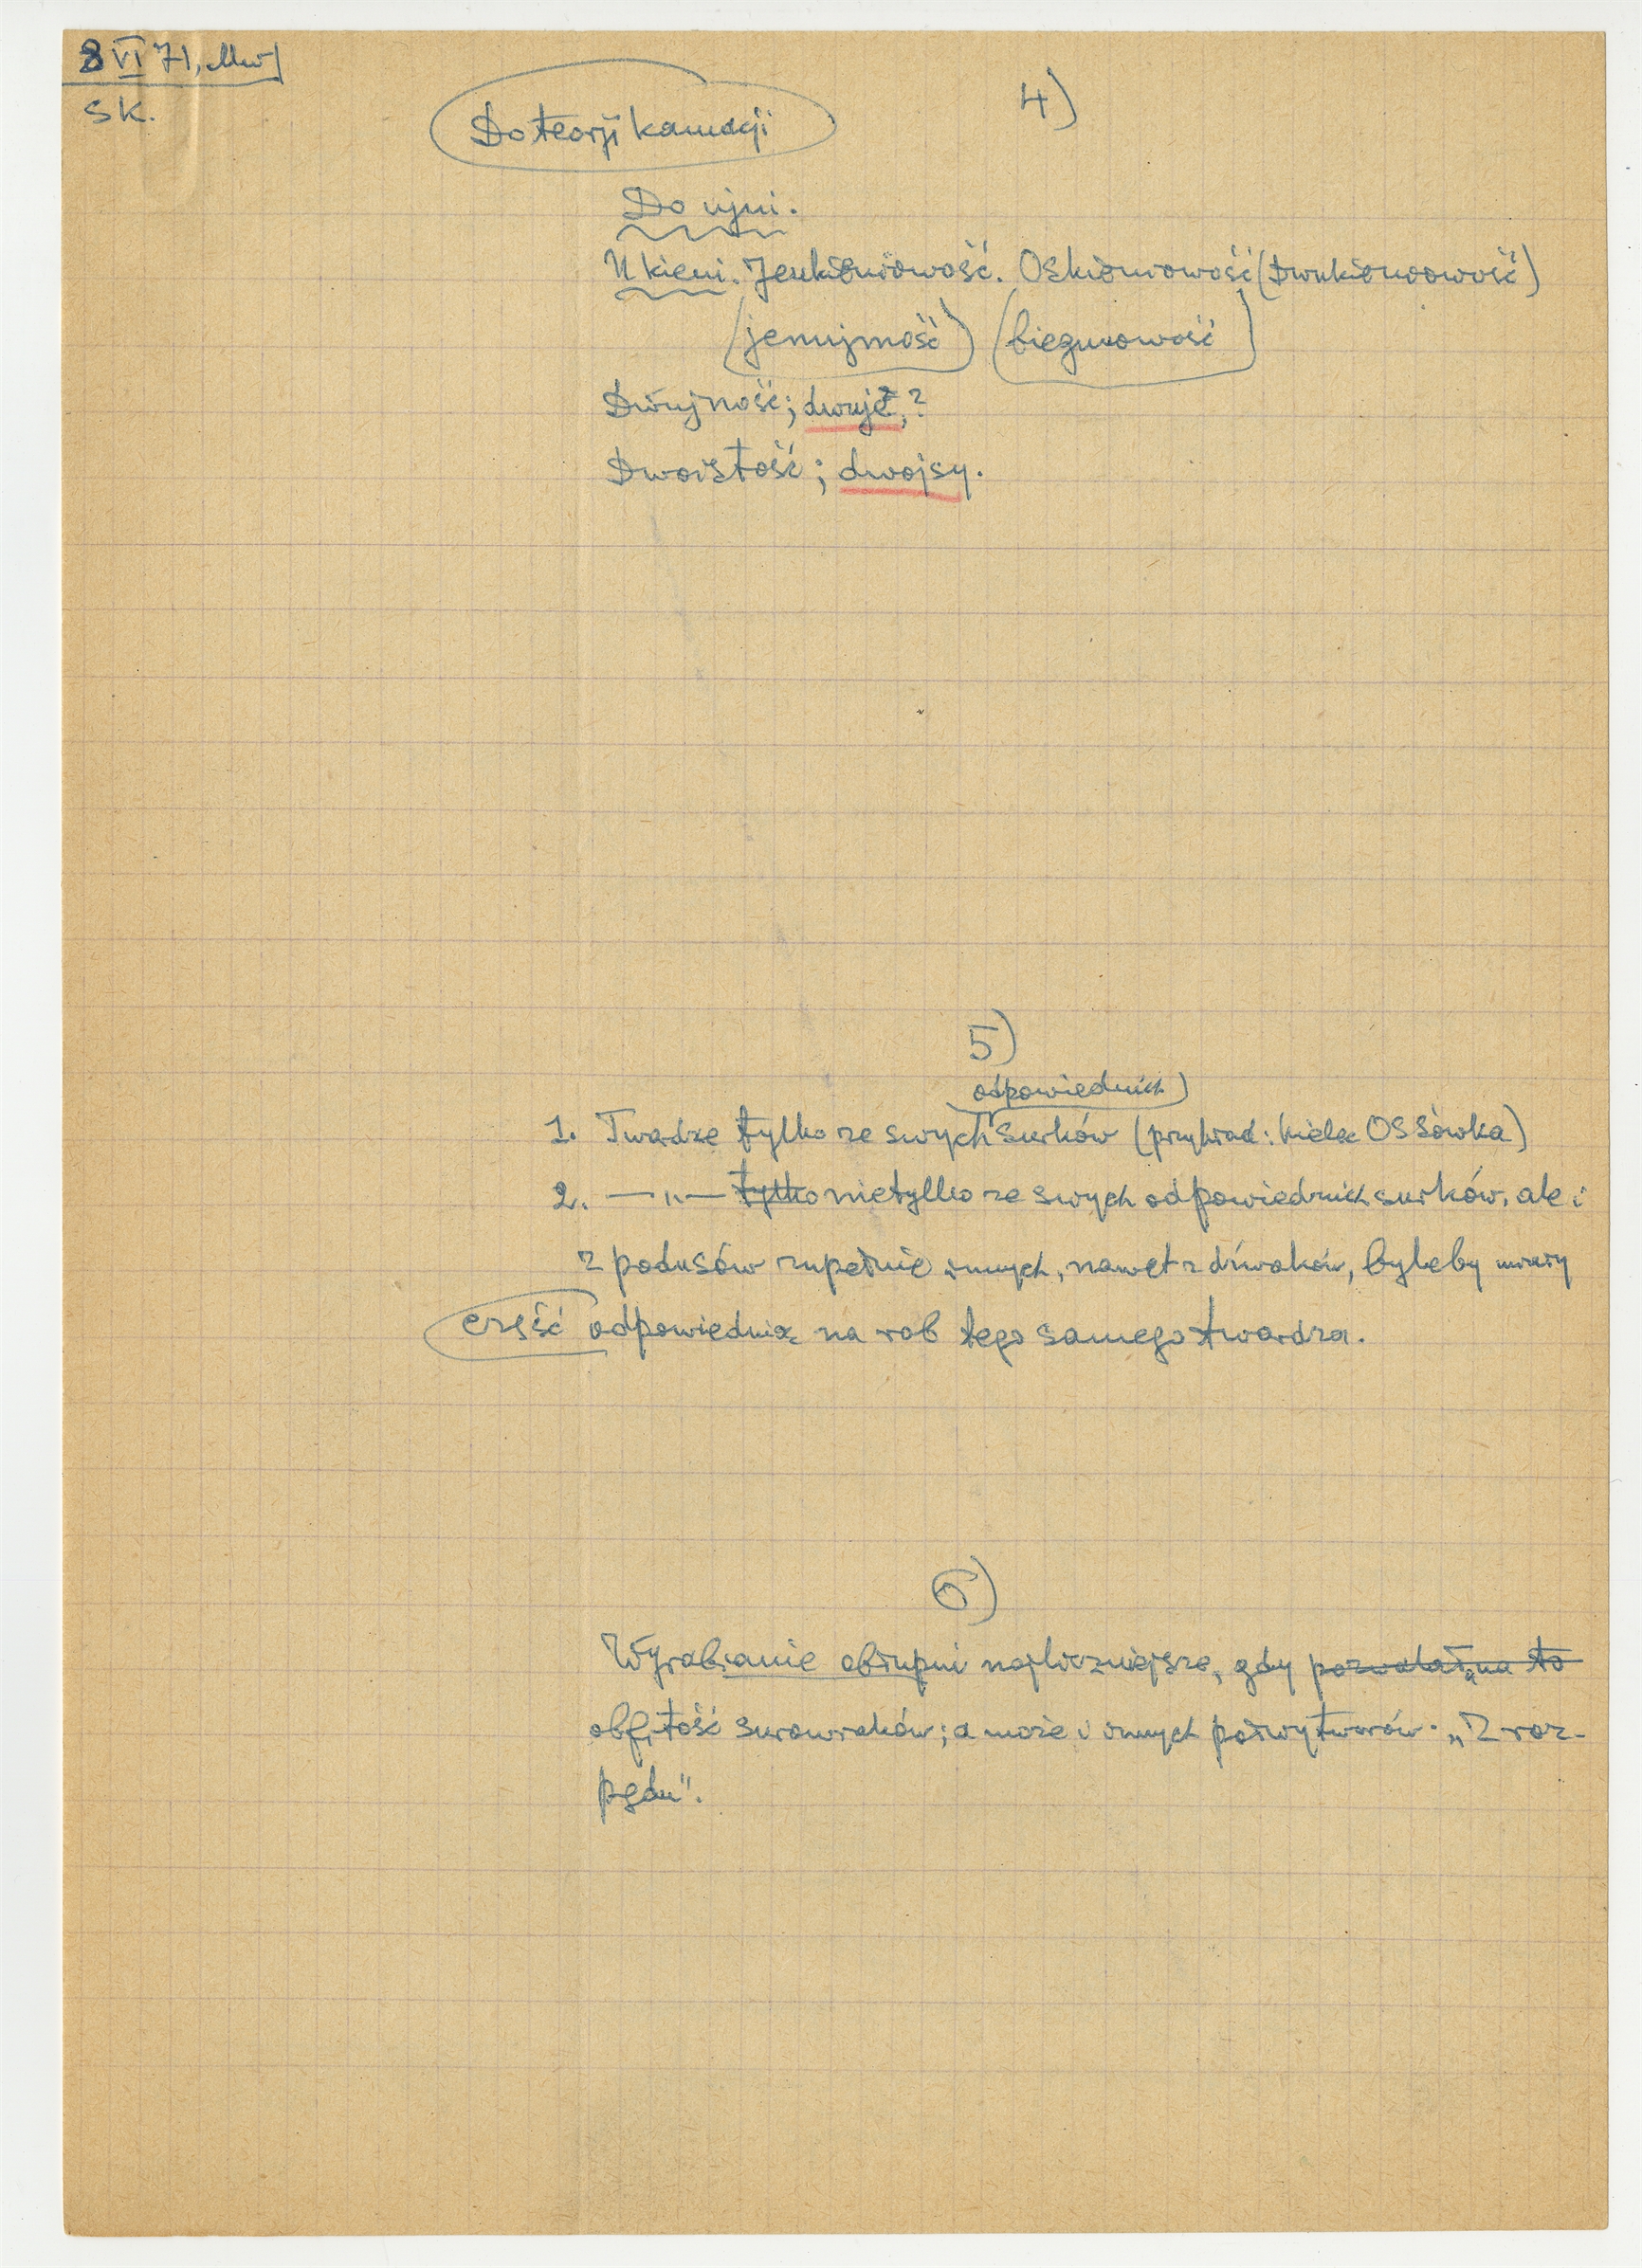 8 VI 71, Mw
SK.
4)
Do teorji kamacji
Do ujni.
U kieni. Jenkieniowość. Oskieniowość (Dwukieniowość)
(jenujmość) (biegunowość)
Dwujność; dwuje?,?
Dwoistość; dwojsy.
5)
odpowiednich
1. Twardze tylko ze swych surków (przykład: kielec OSSówka)
2. —„— tylko nietylko ze swych odpowiednich surków, ale i
z podusów zupełnie innych, nawet z dńwaków, byleby miały
część odpowiednią na rob tego samego twardza.
6)
Wyrabianie obłupni najliczniejsze, gdy pozwalała na to
obfitość surowraków; a może i innych półwytworów. „Z roz-
pędu".